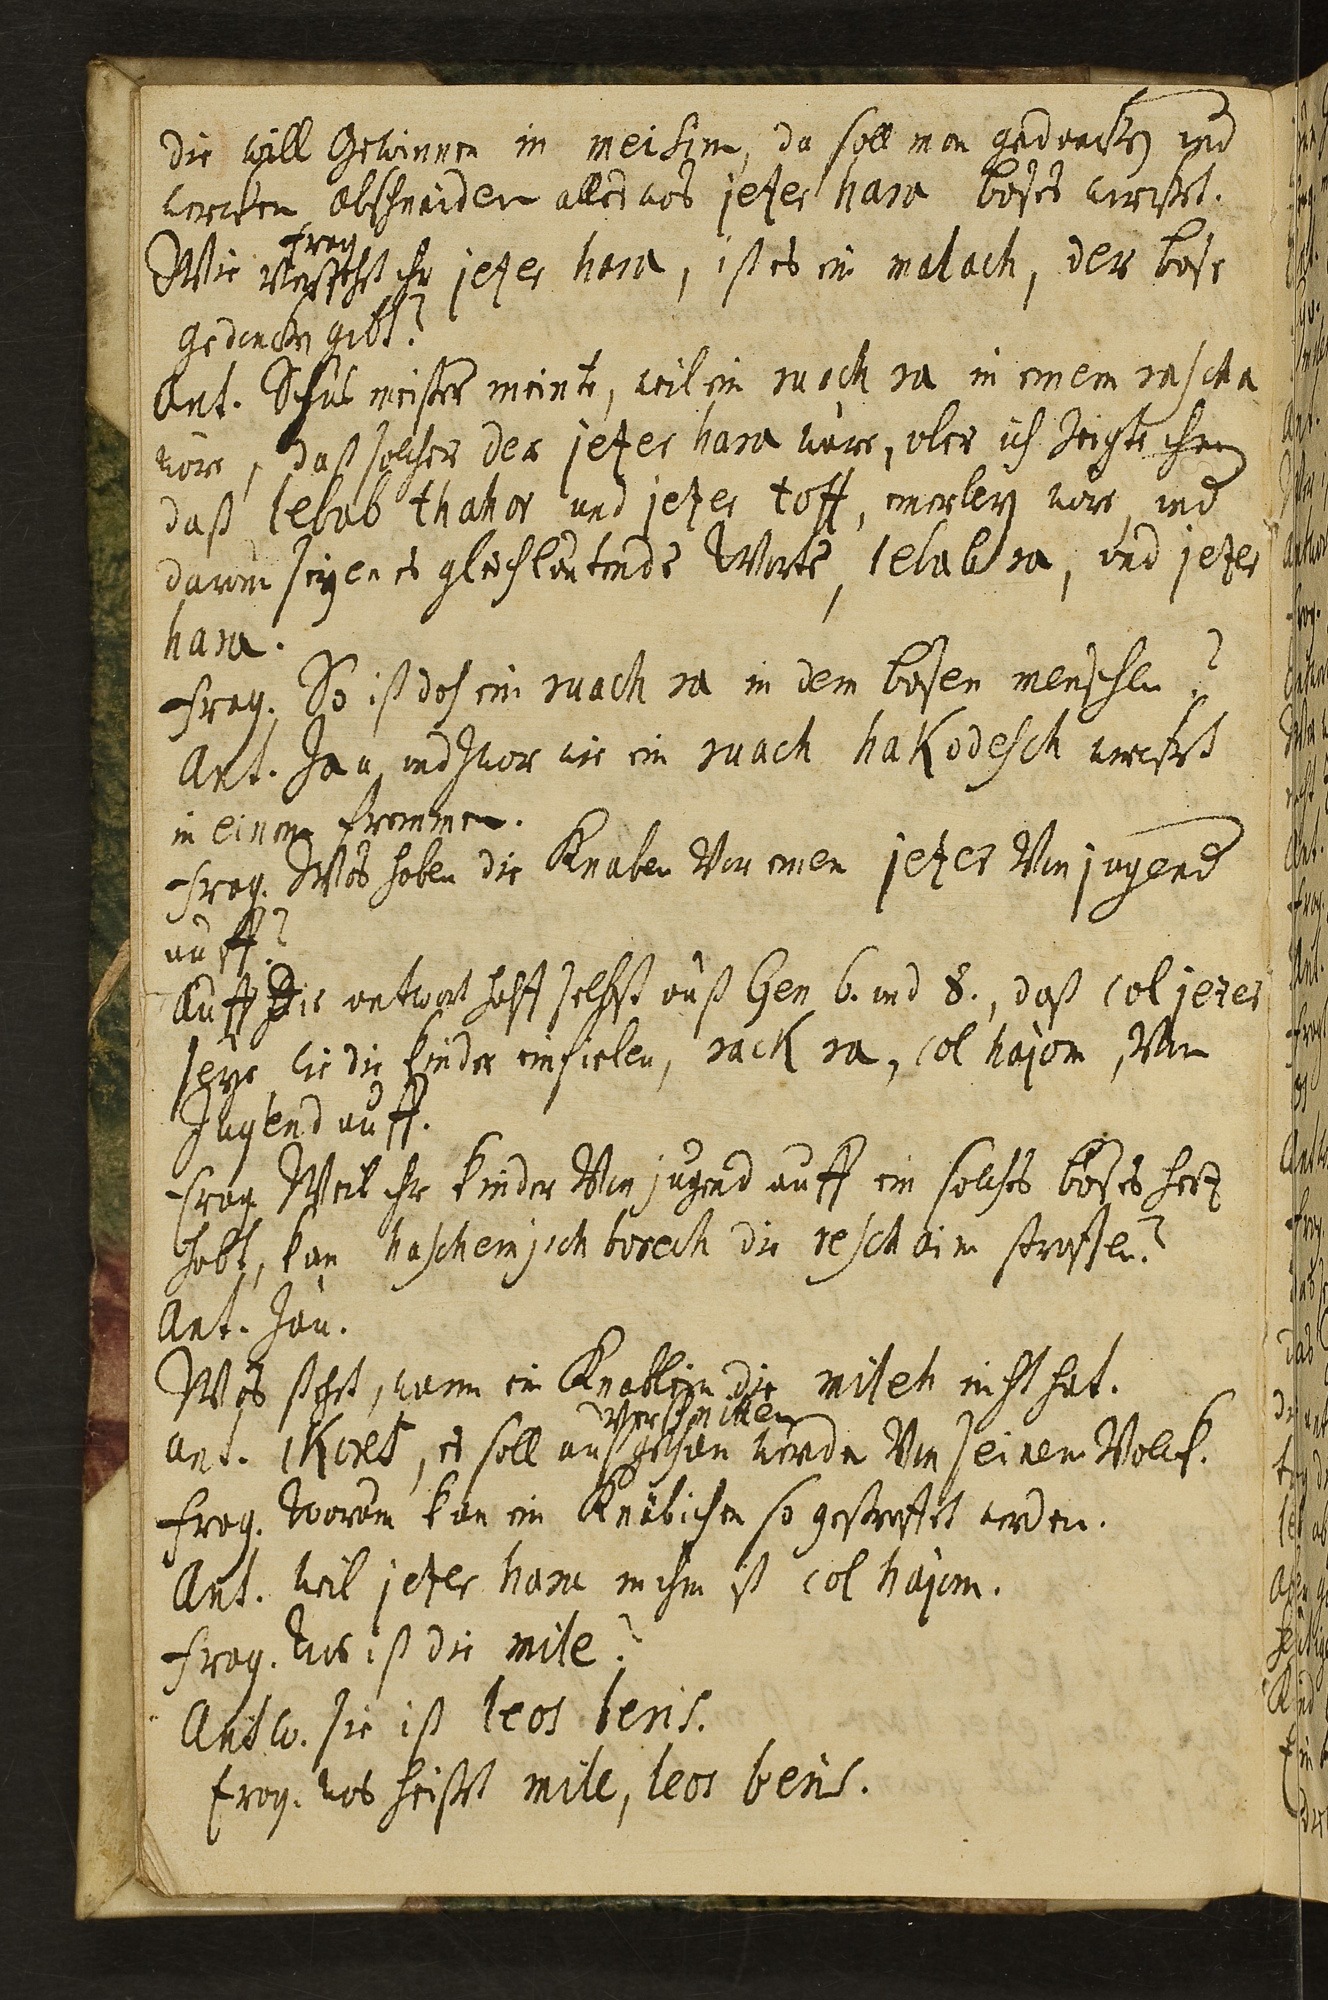 die will Gewinnen in meisim, da soll man gedencken und
wercken abschneiden alles was jezer hara böses wircket.
Frag
Wie verstehst ihr jezer hara, ist es ein malach, der böse
gedencken gibt?
Ant. Schulmeister meinte, weil ein ruach ra in einem rascha
wäre, daß solcher der jezer hara wäre, aber ich zeigte ihm
daß lebab thahor und jezer toff, einerley wäre, und
darum seyen es gleichlautende Worte, lebab ra, und jezer
hara.
Frag. So ist doch ein ruach ra in dem bösen menschen?
Ant. Jau und zwar wie ein ruach hakodesch wircket
in einem frommen.
Frag. Was haben die Knaben vor einen jezer von jugend
auff?
Auff die antwort halff selbst auß Gen 6. und 8., daß col jezer
seye wie die kinder einfielen, rack ra, col hajom, von
Jugend auff.
Frag Weil ihr kinder von jugend auff ein solches böses hertz
habt, kan haschem jischborech die reschaim straffen?
Ant. Jau.
Was steht, wann ein Knäblein die mileh nicht hat.
verschnitten
Ant. ikores, es soll außgethan werden von seinem Volck.
Frag. Warum kan ein Knäbichen so gestraffet werden.
Ant. Weil jezer hara in ihm ist col hajom.
Frag. Was ist die mile?
Antw. sie ist leos beris.
Frag. was heisset mile, leos beris.